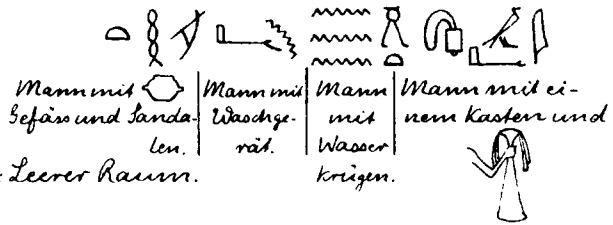 Mann mit
Gefäss und Sanda-
len.
Mann mit
Waschge-
rät.
Mann
mit
Wasser
krügen.
Mann mit ei-
nem Kasten und
Leerer Raum.